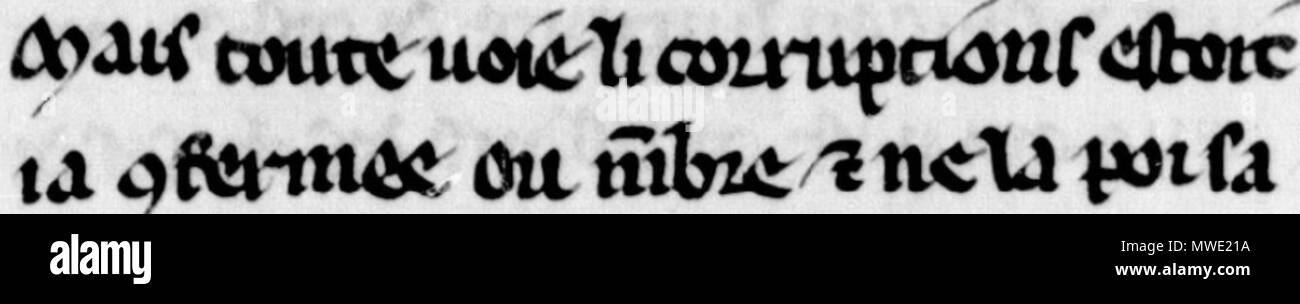 Mais toute uoie li corruptions estoit
ia ꝯfermee ou m̄bre ⁊ ne la poi sa
alamy
alamy
Image ID: MWE21A
www.alamy.com